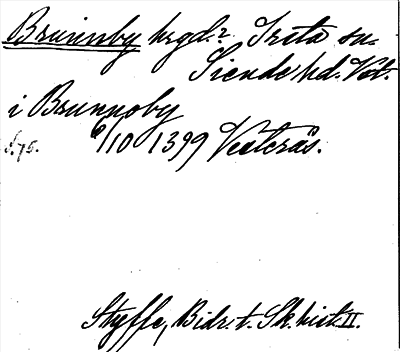 Brunnby hrgd. 2 Irsta sn.
Siende hd. Vstm.
i Brunnoby
s. 75. 6/10 1399 Vesterås.
Styffe, Bidr. t. Sk. hist. II.